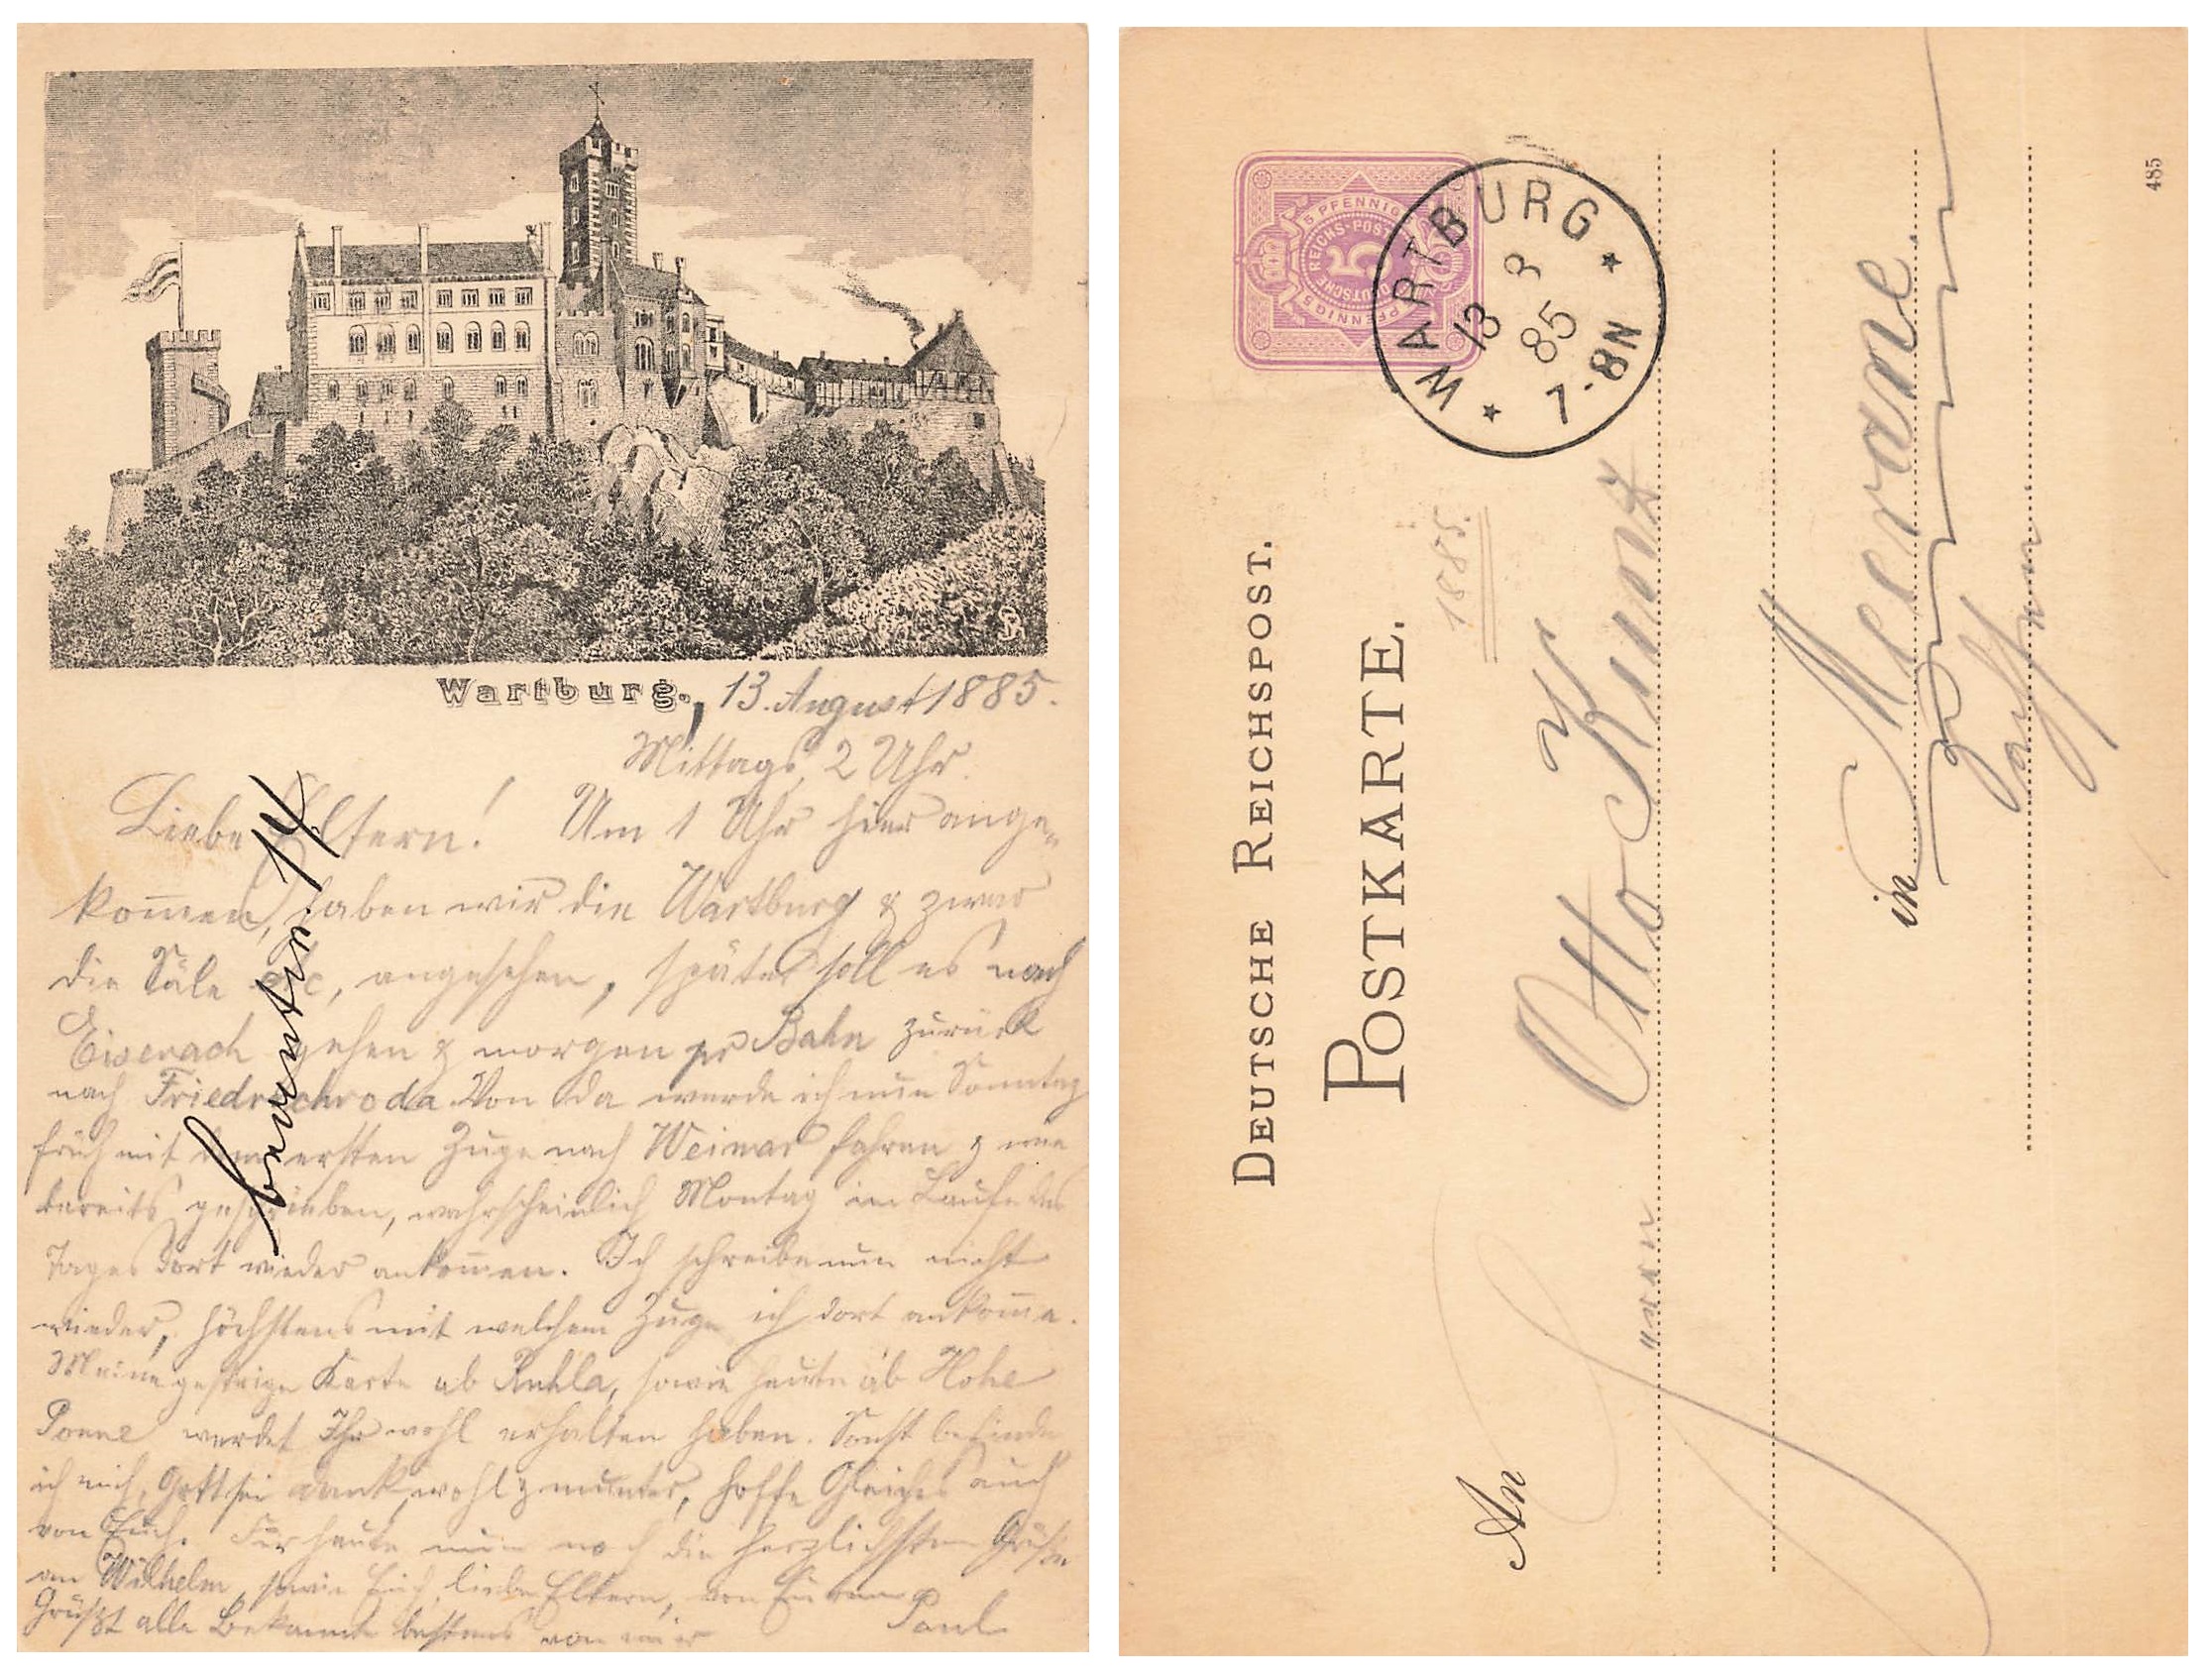 Wartburg., 13. August 1885.
Mittags, 2 Uhr.
Liebe Eltern! Um 1 Uhr hier ange-
kom̅en, haben wir die Wartburg & zwar
die Säle etc, angesehen, später soll es nach
Eisenach gehen & morgen pr Bahn zurück
nach Friedrichroda. Von da werde ich nun Sonntag
früh mit dem ersten Zuge nach Weimar fahren & wie
bereits geschrieben, wahrscheinlich Montag im Laufe des
Tages dort wieder ankom̅en. Ich schreibe nun nicht
wieder, höchstens mit welchem Zuge ich dort ankom̅e.
Meine gestrige Karte ab Ruhla, sowie heute ab Hohe
Sonne werdet Ihr wohl erhalten haben. Sonst befinde
ich mich, Gott sei dank, wohl & munter, hoffe Gleiches auch
von Euch. Für heute nun noch die herzlichsten Grüße
an Wilhelm, sowie Euch, liebe Eltern, von Eurem
Paul
Grüßt alle Bekannte bestens von mir
14
DEUTSCHE REICHSPOST.
POSTKARTE.
1885.
5 PFENNIG 5 PFENNIG
DEUTSCHE REICHS-POST
5
WARTBURG
13 8
85
7-8N
An Herrn Otto Kunz
in Meerane
Sachsen
485